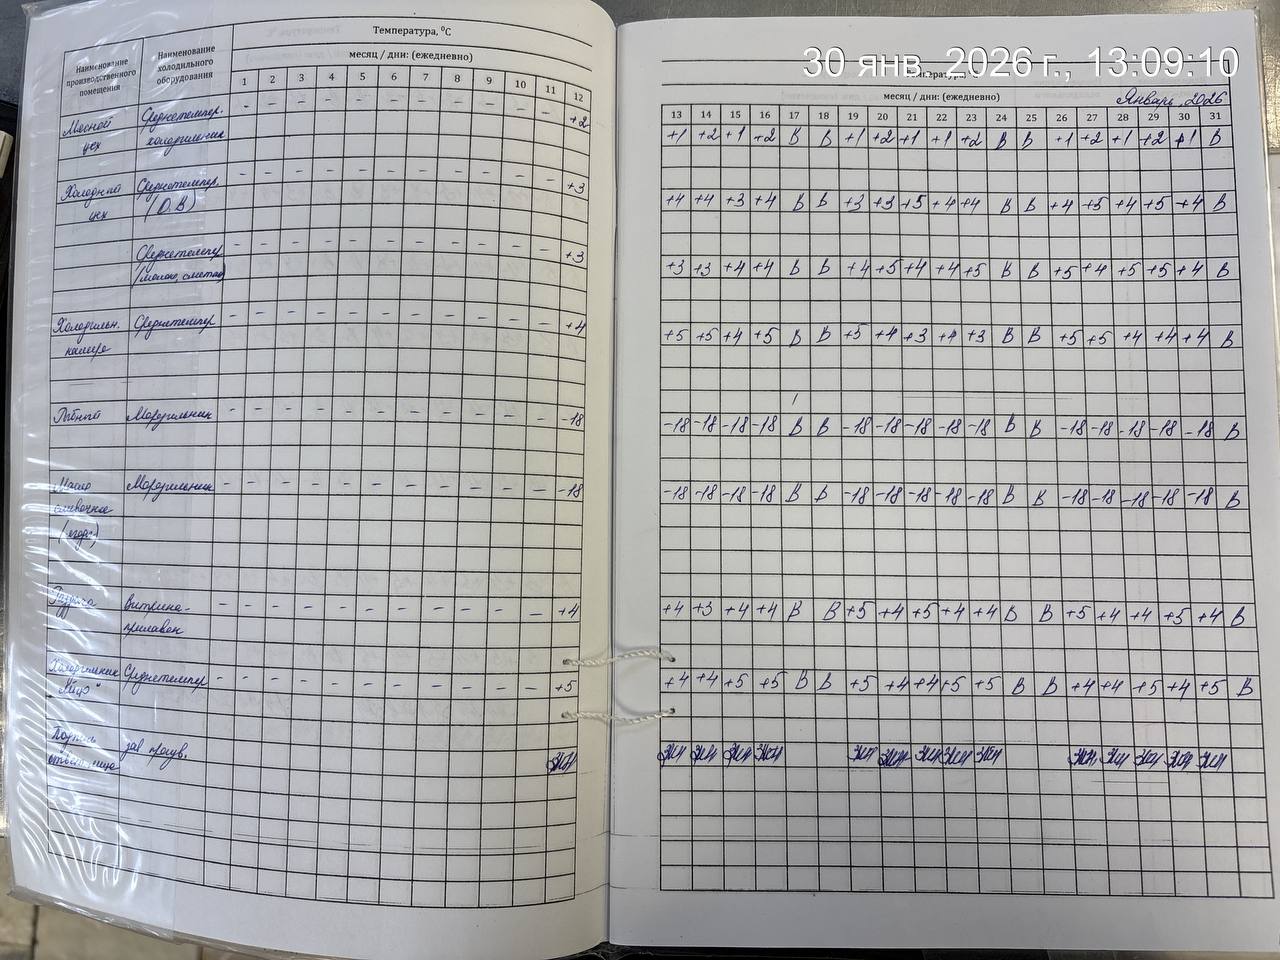 30 янв. 2026 г., 13:09:10
Наименование производственного помещения
Наименование холодильного оборудования
Температура, °С
месяц / дни: (ежедневно)
1 2 3 4 5 6 7 8 9 10 11 12
Мясной цех
Среднетемпер. холодильник
- - - - - - - - - - - +2
Холодный цех
Среднетемпер. (О.В)
- - - - - - - - - - - +3
Среднетемпер (молоко, сметана)
- - - - - - - - - - - +3
Холодильн. камера
Среднетемпер
- - - - - - - - - - - +4
Рыбный
Морозильник
- - - - - - - - - - - -18
Масло сливочное
Морозильник
- - - - - - - - - - - -18
Раздача
Витрина-прилавок
- - - - - - - - - - - +4
Холодильник "Яйцо"
Среднетемпер
- - - - - - - - - - - +5
Подпись
зав. произв.
месяц / дни: (ежедневно)
Январь, 2026
13 14 15 16 17 18 19 20 21 22 23 24 25 26 27 28 29 30 31
+1 +2 +1 +2 В В +1 +2 +1 +1 +2 В В +1 +2 +1 +2 +1 В
+4 +4 +3 +4 В В +3 +3 +5 +4 +4 В В +4 +5 +4 +5 +4 В
+3 +3 +4 +4 В В +4 +5 +4 +4 +5 В В +5 +4 +5 +5 +4 В
+5 +5 +4 +5 В В +5 +4 +3 +4 +3 В В +5 +5 +4 +4 +4 В
-18 -18 -18 -18 В В -18 -18 -18 -18 -18 В В -18 -18 -18 -18 -18 В
-18 -18 -18 -18 В В -18 -18 -18 -18 -18 В В -18 -18 -18 -18 -18 В
+4 +3 +4 +4 В В +5 +4 +5 +4 +4 В В +5 +4 +4 +5 +4 В
+4 +4 +5 +5 В В +5 +4 +4 +5 +5 В В +4 +4 +5 +4 +5 В